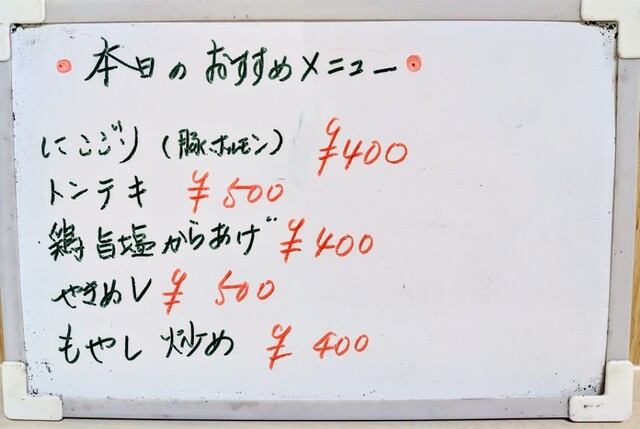 ・本日のおすすめメニュー・
にこごり(豚ホルモン) ¥400
トンテキ ¥500
鶏旨塩からあげ ¥400
やきめし ¥500
もやし炒め ¥400